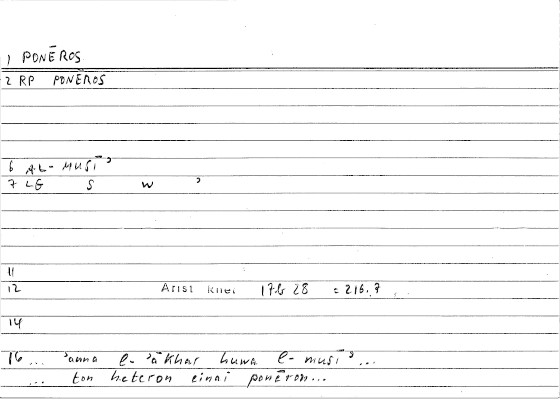 1 PONĒROS
2 RP PONEROS
6 AL-MUSĪʾ
7 LG S W ʾ
11
12 Arist Rhet 17b 28 = 216.7
14
16 ... ʾanna l-ʾākhar huwa l-musīʾ...
... ton heteron einai ponēron...